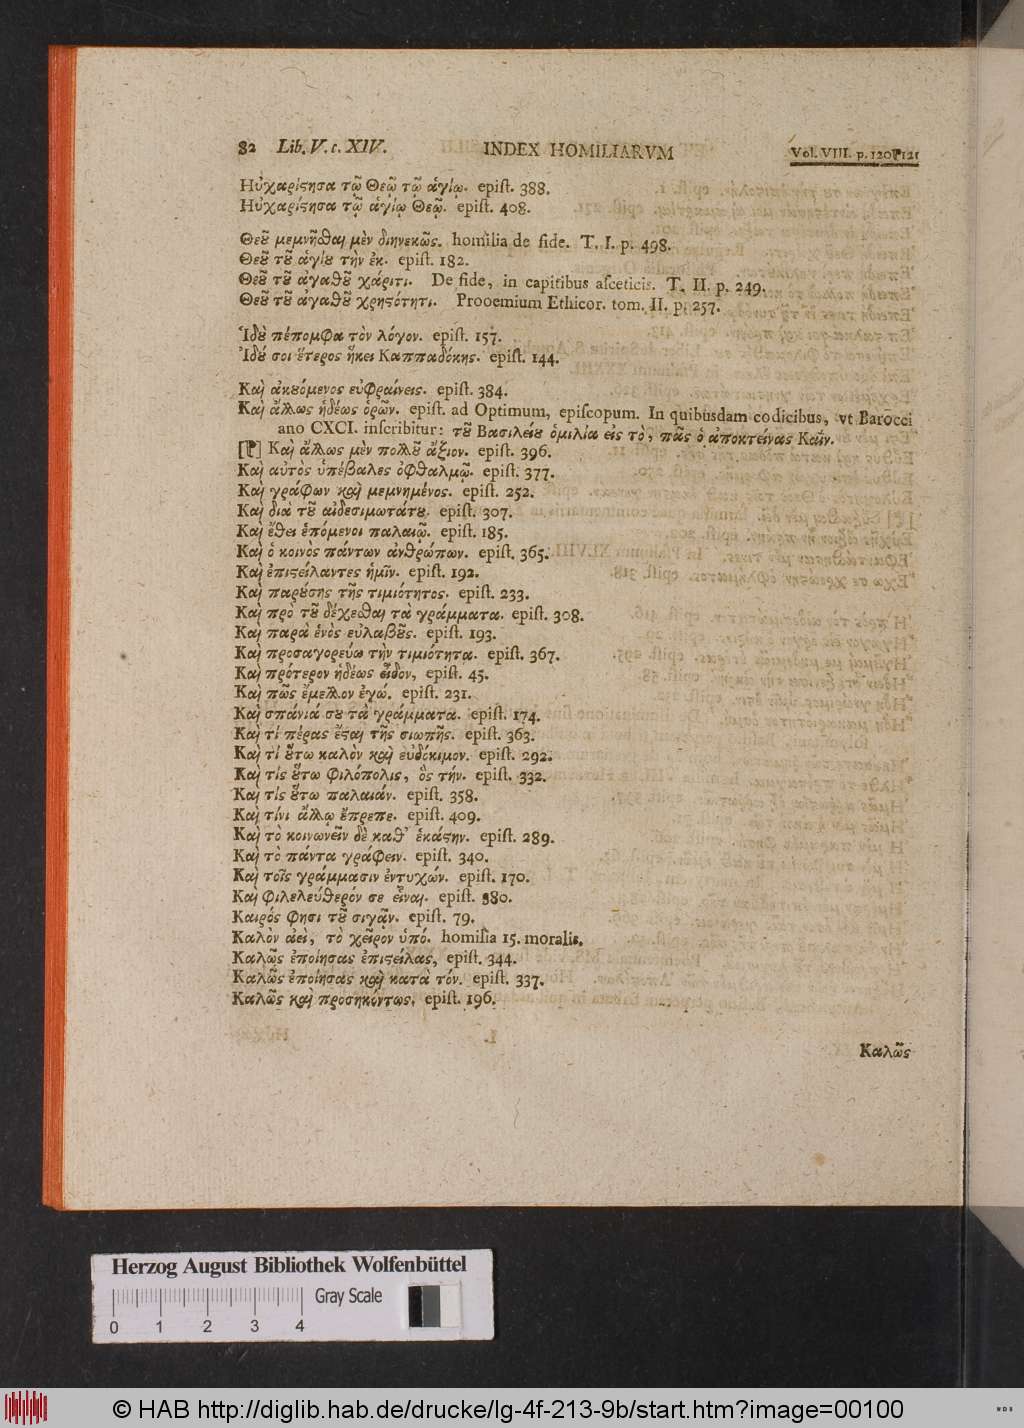 82 Lib. V. c. XIV. INDEX HOMILIARVM Vol. VIII. p. 120 121
Ηὐχαρίϛησα τῷ Θεῷ τῷ ἁγίῳ. epiſt. 388.
Ηὐχαρίϛησα τῷ ἁγίῳ Θεῷ. epiſt. 408.
Θεȣ͂ μεμνῆϑαι μὲν διηνεκῶς. homilia de fide. T. I. p. 498.
Θεȣ͂ τȣ͂ ἁγίȣ τὴν ἐκ. epiſt. 182.
Θεȣ͂ τȣ͂ ἀγαθȣ͂ χάριτι. De fide, in capitibus aſceticis. T. II. p. 249.
Θεȣ͂ τȣ͂ ἀγαθȣ͂ χρηϛότητι. Prooemium Ethicor. tom. II. p. 257.
Ἰδȣ̀ πέπομφα τὸν λόγον. epiſt. 157.
Ἰδȣ́ σοι ἕτερος ἥκει Καππαδόκης. epiſt. 144.
Καὶ ἀκȣόμενος εὐφραίνεις. epiſt. 384.
Καὶ ἄλλως ἡδέως ὁρῶν. epiſt. ad Optimum, epiſcopum. In quibusdam codicibus, vt Barocci
ano CXCI. inſcribitur: τȣ͂ Βασιλείȣ ὁμιλία εἰς τὸ, πᾶς ὁ ἀποκτείνας Καΐν.
[¶] Καὶ ἄλλως μὲν πολλȣ͂ ἄξιον. epiſt. 396.
Καὶ αὐτὸς ὑπέβαλες ὀφθαλμῷ. epiſt. 377.
Καὶ γράφων καὶ μεμνημένος. epiſt. 252.
Καὶ διὰ τȣ͂ αἰδεσιμωτάτȣ. epiſt. 307.
Καὶ ἔθει ἑπόμενοι παλαιῷ. epiſt. 185.
Καὶ ὁ κοινὸς πάντων ἀνθρώπων. epiſt. 365.
Καὶ ἐπιϛείλαντες ἡμῖν. epiſt. 192.
Καὶ παρȣ́σης τῆς τιμιότητος. epiſt. 233.
Καὶ πρὸ τȣ͂ δέχεϑαι τὰ γράμματα. epiſt. 308.
Καὶ παρὰ ἑνὸς εὐλαβȣ͂ς. epiſt. 193.
Καὶ προσαγορεύω τὴν τιμιότητα. epiſt. 367.
Καὶ πρότερον ἡδέως εἶδον, epiſt. 45.
Καὶ πῶς ἔμελλον ἐγώ. epiſt. 231.
Καὶ σπάνιά σȣ τὰ γράμματα. epiſt. 174.
Καὶ τί πέρας ἔϛαι τῆς σιωπῆς. epiſt. 363.
Καὶ τί ȣ̔́τω καλὸν καὶ εὐδόκιμον. epiſt. 292.
Καὶ τίς ȣ̔́τω φιλόπολις, ὃς τήν. epiſt. 332.
Καὶ τίς ȣ̔́τω παλαιάν. epiſt. 358.
Καὶ τίνι ἄλλῳ ἔπρεπε. epiſt. 409.
Καὶ τὸ κοινωνεῖν δὲ καθ᾽ ἑκάϛην. epiſt. 289.
Καὶ τὸ πάντα γράφειν. epiſt. 340.
Καὶ τοῖς γράμμασιν ἐντυχών. epiſt. 170.
Καὶ φιλελεύθερόν σε εἶναι. epiſt. 380.
Καιρός φησι τȣ͂ σιγᾷν. epiſt. 79.
Καλὸν ἀεὶ, τὸ χεῖρον ὑπό. homilia 15. moralis.
Καλῶς ἐποίησας ἐπιϛείλας, epiſt. 344.
Καλῶς ἐποίησας καὶ κατὰ τόν. epiſt. 337.
Καλῶς καὶ προσηκόντως. epiſt. 196.
Καλῶς
Herzog August Bibliothek Wolfenbüttel
Gray Scale
0 1 2 3 4
© HAB http://diglib.hab.de/drucke/lg-4f-213-9b/start.htm?image=00100